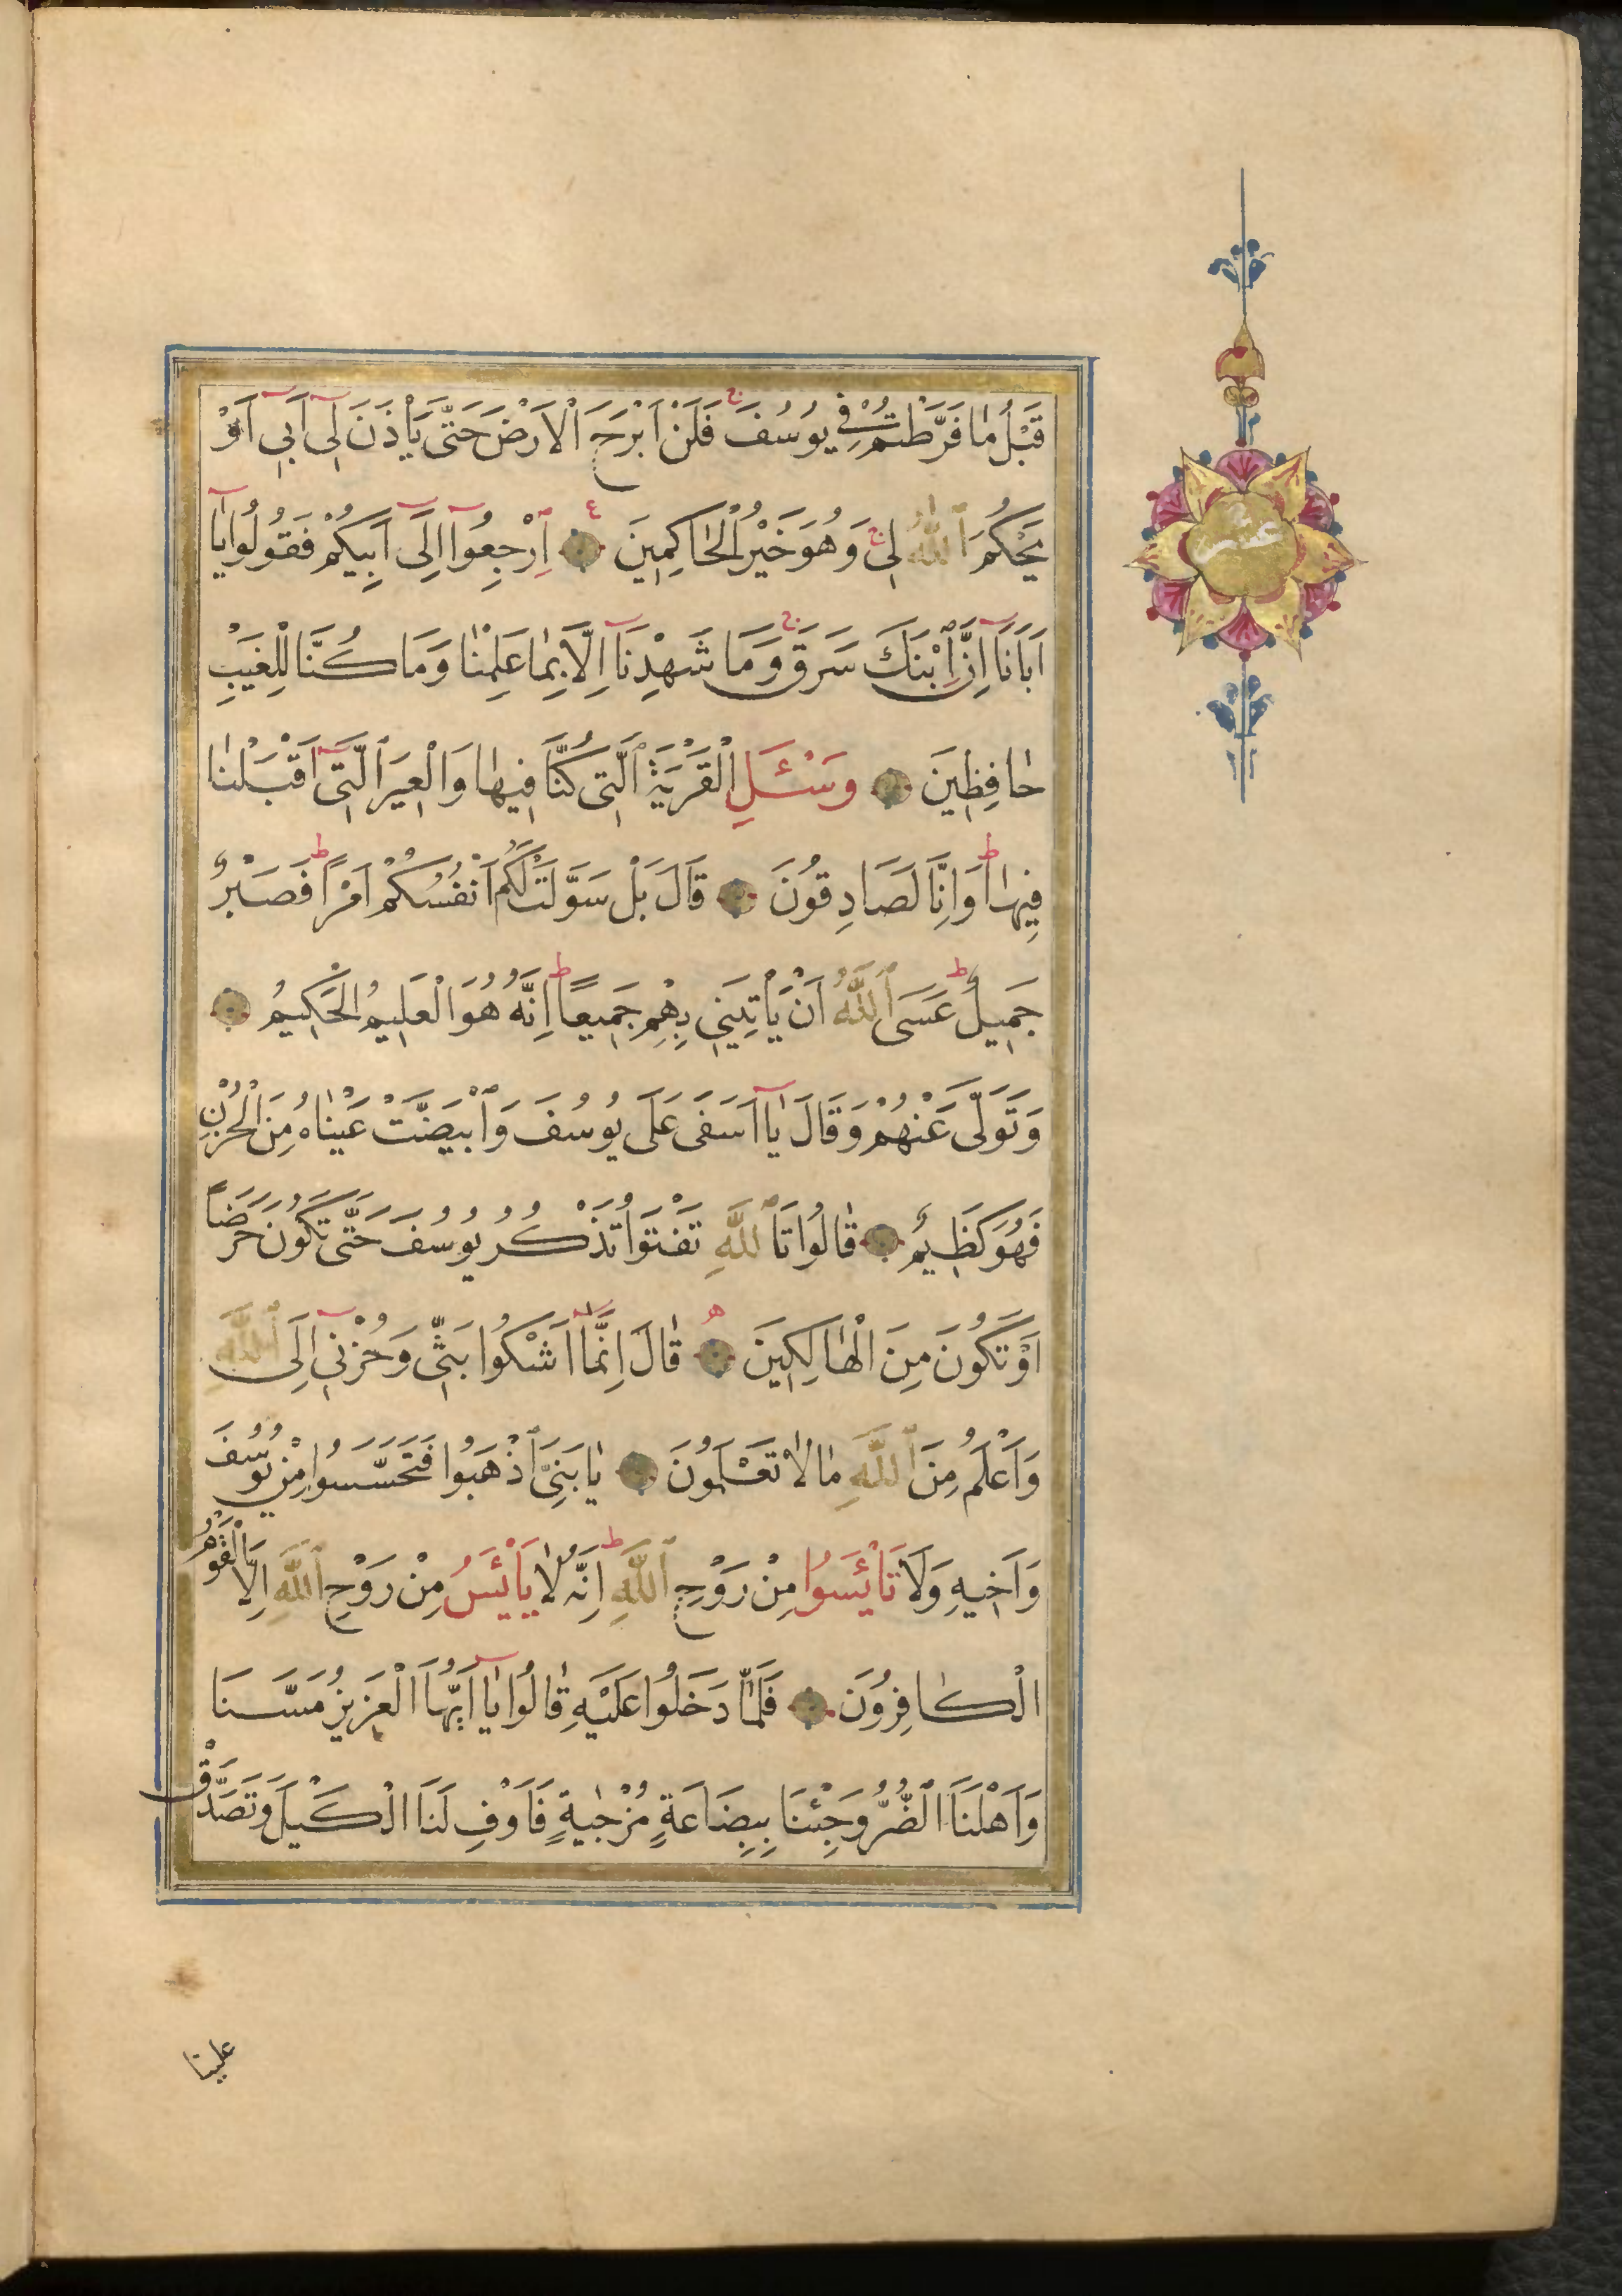 قَبْلُ مٰا فَرَّطْتُمْ فِي يُوسُفَ ج فَلَنْ اَبْرَحَ الْاَرْضَ حَتّٰى يَأْذَنَ لِىٓ اَبِىٓ اَوْ
يَحْكُمَ ٱللّٰهُ لِى ج وَهُوَ خَيْرُ الْحٰاكِمِينَ ٤ اِرْجِعُوٓا اِلٰٓى اَبِيكُمْ فَقُولُوا يٰٓا
اَبٰانَآ اِنَّ ٱبْنَكَ سَرَقَ ج وَمَا شَهِدْنَآ اِلَّا بِمٰا عَلِمْنٰا وَمَا كُنَّا لِلْغَيْبِ
حٰافِظِينَ وَسْـَٔلِ الْقَرْيَةَ ٱلَّتِى كُنَّا فِيهٰا وَالْعِيرَ الَّتِىٓ اَقْبَلْنٰا
فِيهٰا ط وَاِنَّا لَصَادِقُونَ قَالَ بَلْ سَوَّلَتْ لَكُمْ اَنْفُسُكُمْ اَمْرًا ط فَصَبْرٌ
جَمِيلٌ ط عَسَى ٱللّٰهُ اَنْ يَأْتِيَنِى بِهِمْ جَمِيعًا ط اِنَّهُ هُوَ الْعَلِيمُ الْحَكِيمُ
وَتَوَلّٰى عَنْهُمْ وَقَالَ يٰٓا اَسَفٰى عَلَى يُوسُفَ وَٱبْيَضَّتْ عَيْنٰاهُ مِنَ الْحُزْنِ
فَهُوَ كَظِيمٌ قٰالُوا تَٱللّٰهِ تَفْتَؤُا تَذْكُرُ يُوسُفَ حَتّٰى تَكُونَ حَرَضًا
اَوْ تَكُونَ مِنَ الْهٰالِكِينَ ه قٰالَ اِنَّمَآ اَشْكُوا بَثِّى وَحُزْنِىٓ اِلَى ٱللّٰهِ
وَاَعْلَمُ مِنَ ٱللّٰهِ مٰا لٰا تَعْلَمُونَ يٰا بَنِىَّ ٱذْهَبُوا فَتَحَسَّسُوا مِنْ يُوسُفَ
وَاَخِيهِ وَلَا تَايْـَٔسُوا مِنْ رَوْحِ ٱللّٰهِ ط اِنَّهُ لٰا يَايْـَٔسُ مِنْ رَوْحِ ٱللّٰهِ اِلَّا الْقَوْمُ
الْكٰافِرُونَ فَلَمَّا دَخَلُوا عَلَيْهِ قٰالُوا يٰٓا اَيُّهَا الْعَزِيزُ مَسَّنَا
وَاَهْلَنَا الضُّرُّ وَجِئْنَا بِبِضَاعَةٍ مُزْجٰيةٍ فَاَوْفِ لَنَا الْكَيْلَ وَتَصَدَّقْ
علينا
عشر